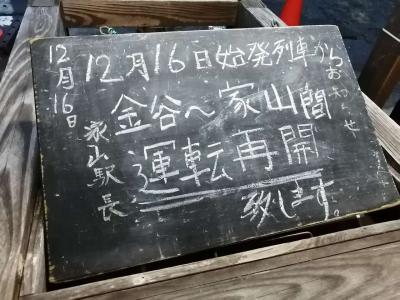 おしらせ
12月16日始発列車から
金谷～家山間
運転再開
致します。
12月16日
家山駅長